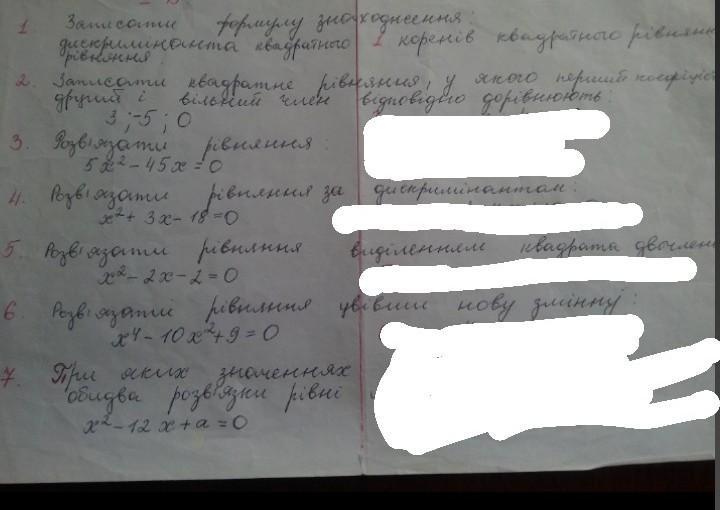 1 Записати формулу знаходження:
дискримінанта квадратного 1 коренів квадратного рівнянн
рівняння
2. Записати квадратне рівняння, у якого перший коефіціє
другий і вільний член відповідно дорівнюють:
3 ; -5 ; 0
3. Розв'язати рівняння:
5x² - 45x = 0
4. Розв'язати рівняння за дискримінантом:
x² + 3x - 18 = 0
5. Розв'язати рівняння виділенням квадрата двочлен
x² - 2x - 2 = 0
6. Розв'язати рівняння увівши нову змінну:
x⁴ - 10x² + 9 = 0
7. При яких значеннях
обидва розв'язки рівні
x² - 12x + a = 0